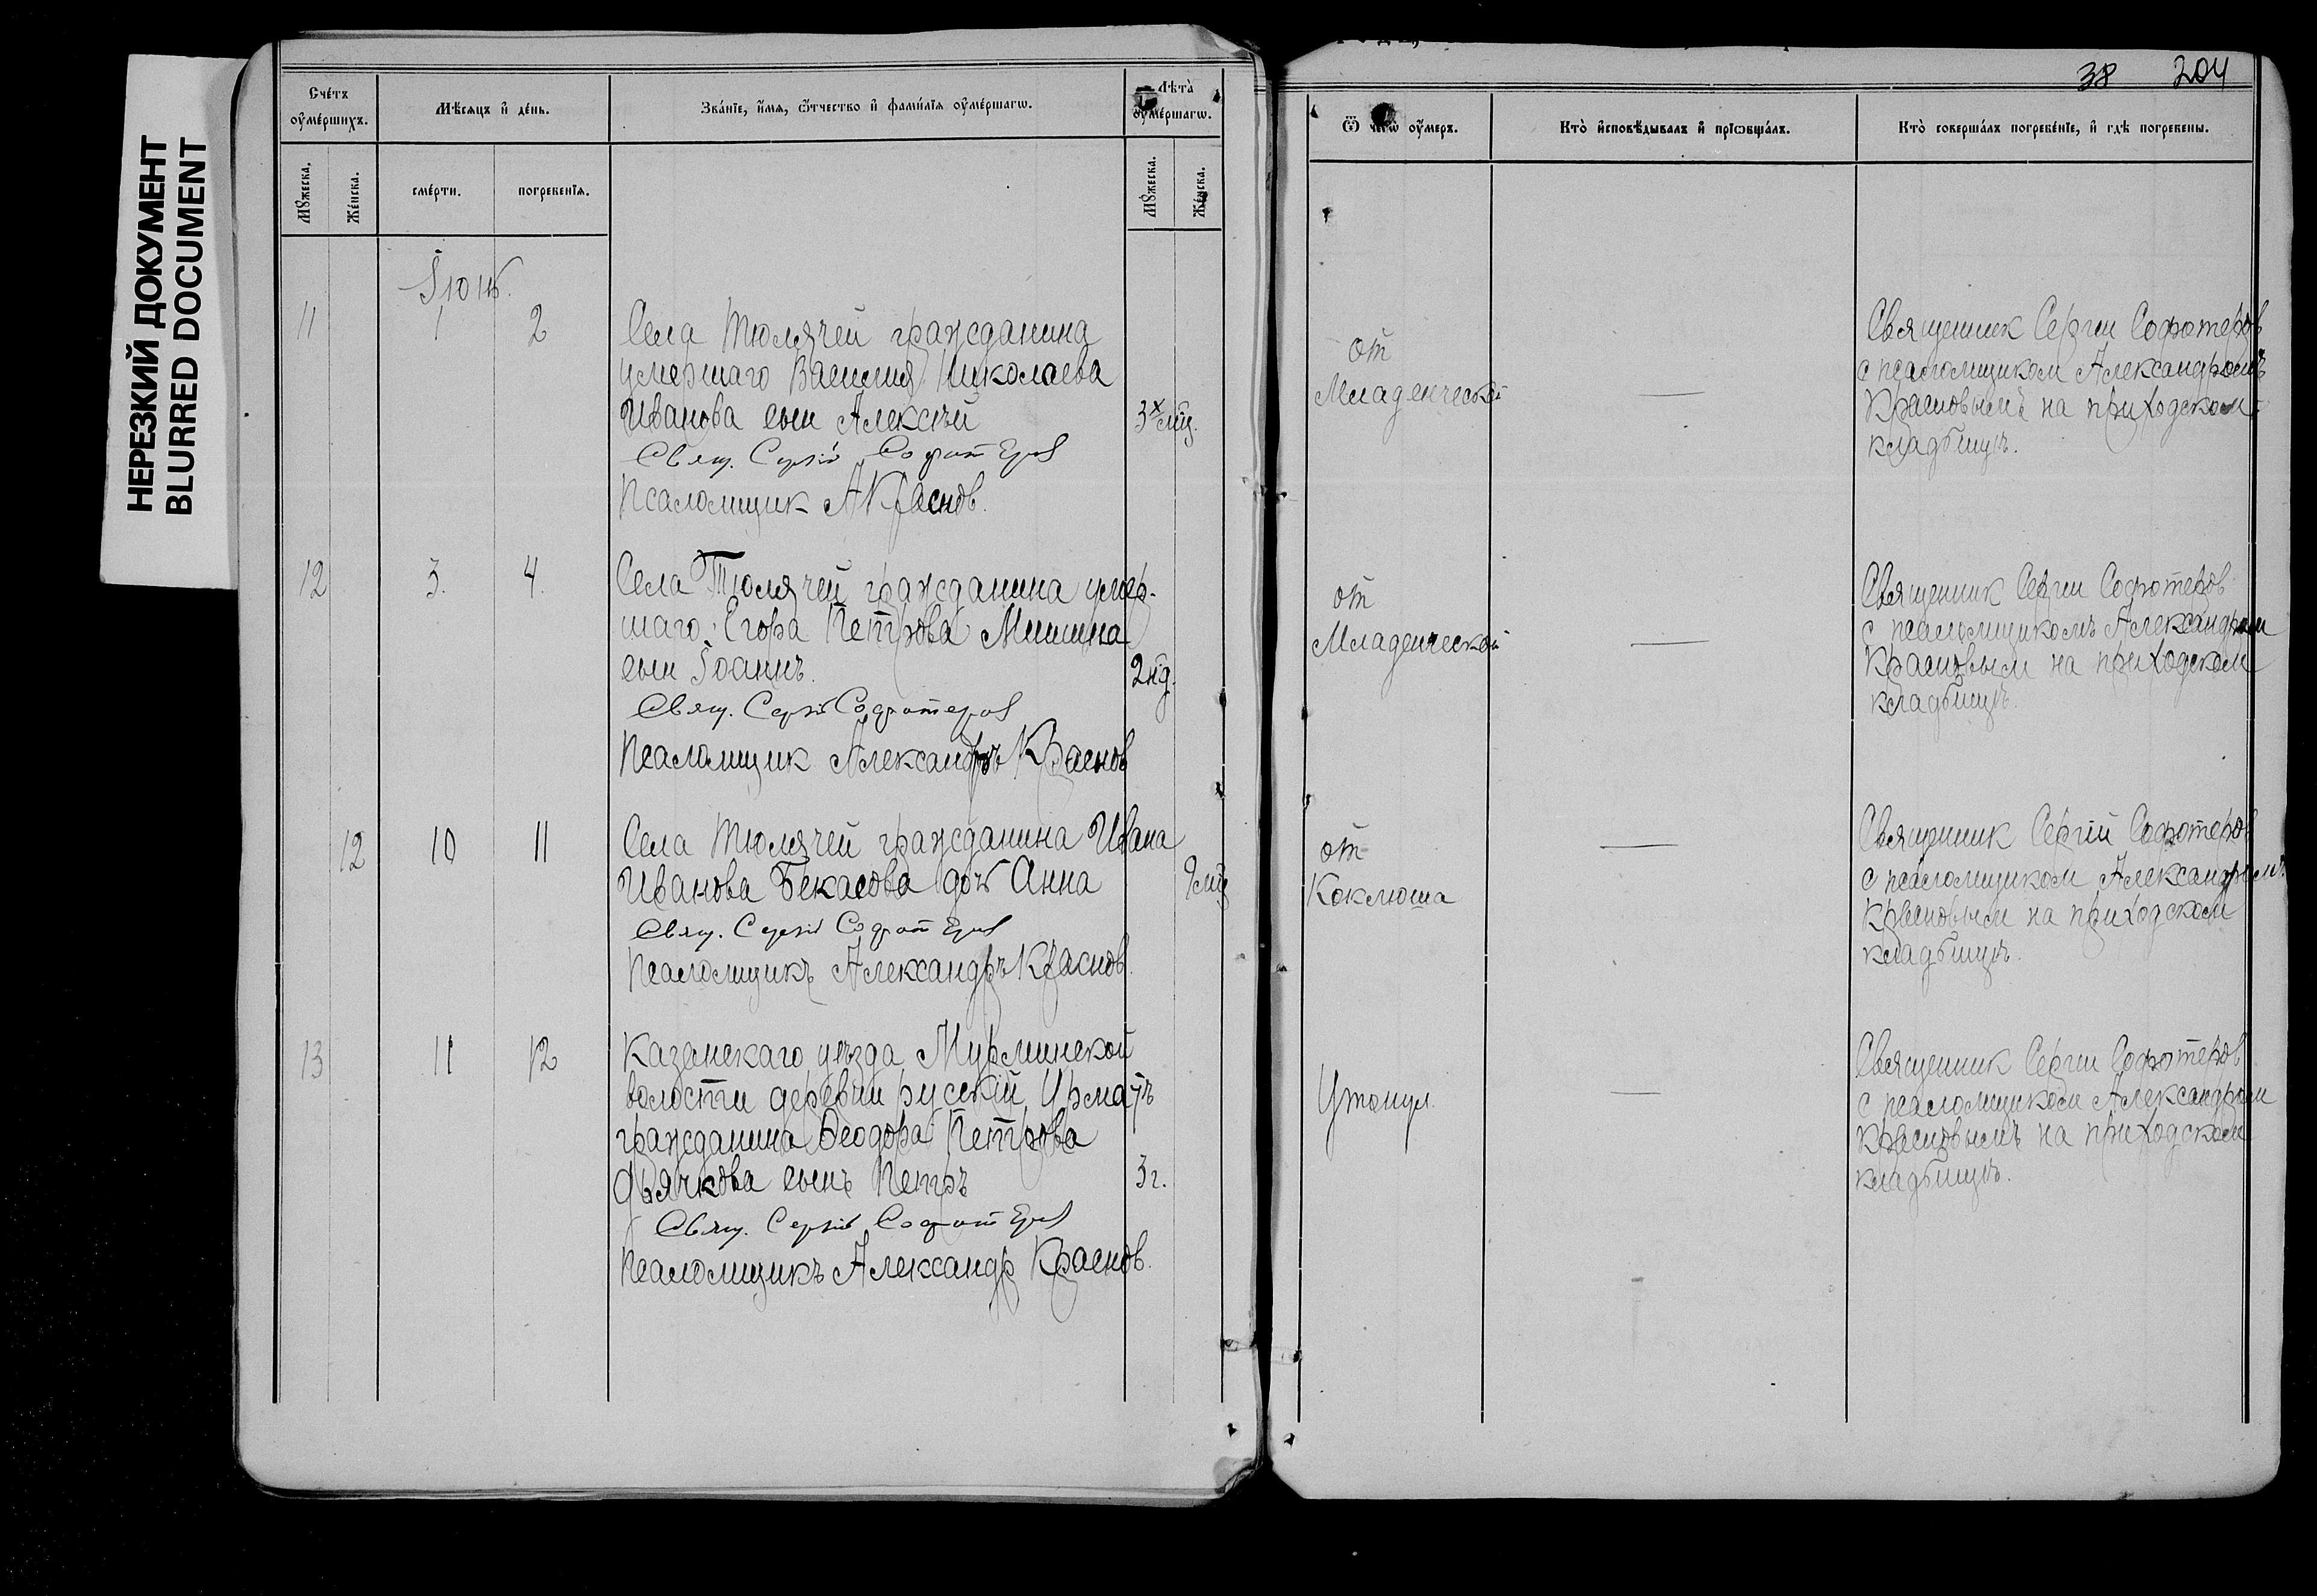 НЕРЕЗКИЙ ДОКУМЕНТ
BLURRED DOCUMENT
38 204
Счетъ оумершихъ.
Мѣсяцъ и день.
Званіе, имя, отчество и фамилія оумершагѡ.
Лѣта оумершагѡ.
Ѿ чегѡ оумеръ.
Кто исповѣдывалъ и пріѡбщалъ.
Кто совершалъ погребеніе, и гдѣ погребены.
Мужеска.
Женска.
смерти.
погребенія.
Мужеска.
Женска.
Іюнь.
11 1 2
Села Тюлячей гражданина
умершаго Василия Николаева
Иванова сын Алексѣй
3х мц.
Свящ. Сергій Софотеров
Псаломщик А Краснов.
от
Младенческой
—
Священник Сергии Софотеров
с псаломщиком Александромъ
Красновымъ на приходском
кладбищѣ.
12 3. 4.
Села Тюлячей гражданина умер-
шаго Егора Петрова Мишина
сын Іоаннъ.
2 нд.
Свящ. Сергій Софотеров
Псаломщик Александръ Краснов
от
Младенческой
—
Священник Сергии Софотеров
с псаломщикомъ Александром
Красновым на приходском
кладбищѣ.
12 10 11
Села Тюлячей гражданина Ивана
Иванова Бекасова дочь Анна
9 мц
Свящ. Сергій Софотеров
Псаломщикъ Александръ Краснов.
от
Коклюша
—
Священник Сергій Софотеров
с псаломщиком Александромъ
Красновым на приходском
кладбищѣ.
13 11 12
Казанскаго уѣзда Мурминской
волости деревни русскій Урматъ
гражданина Ѳеодора Петрова
Дьячкова сынъ Петръ
3 г.
Свящ. Сергій Софотеров
Псаломщикъ Александр Краснов.
Утонул.
—
Священник Сергии Софотеров
с псаломщиком Александром
Красновымъ на приходском
кладбищѣ.